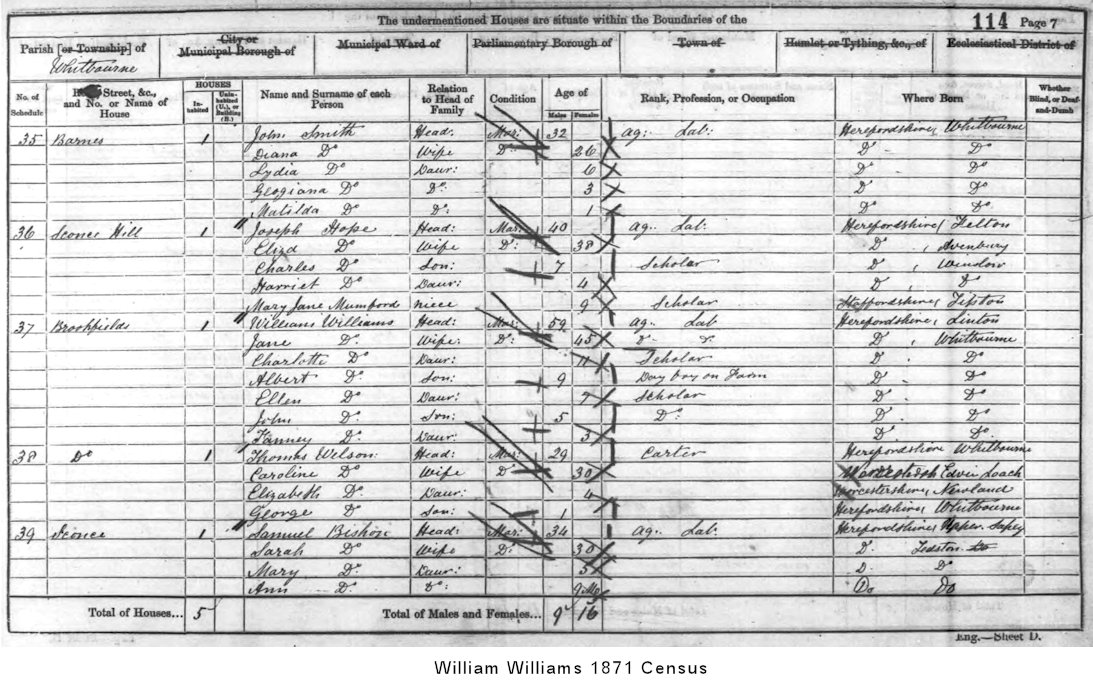 The undermentioned Houses are situate within the Boundaries of the 114 Page 7
Parish [or Township] of Whitbourne City or Municipal Borough of Municipal Ward of Parliamentary Borough of Town of Hamlet or Tything, &c., of Ecclesiastical District of
No. of Schedule Street, &c., and No. or Name of House HOUSES Inhabited Uninhabited (U.), or Building (B.) Name and Surname of each Person Relation to Head of Family Condition Age of Males Females Rank, Profession, or Occupation Where Born Whether Blind, or Deaf-and-Dumb
35 Barnes 1 John Smith Head: Mar: 32 Ag: Lab: Herefordshire, Whitbourne
Diana Do Wife Do: 26 Do Do
Lydia Do Daur: 6 Do Do
Geogiana Do Do: 3 Do Do
Matilda Do Do: 1 Do Do
36 Sconce Hill 1 Joseph Hope Head: Mar: 40 Ag: Lab: Herefordshire, Felton
Eliza Do Wife Do: 38 Do, Avenbury
Charles Do Son: 7 Scholar Do, Winslow
Harriet Do Daur: 4 Do, Do
Mary Jane Mumford niece 9 Scholar Staffordshire, Tipton
37 Brookfields 1 William Williams Head: Mar: 59 Ag: Lab Herefordshire, Linton
Jane Do Wife: Do: 45 Do Do Do, Whitbourne
Charlotte Do Daur: 11 Scholar Do Do
Albert Do Son: 9 Day boy on Farm Do Do
Ellen Do Daur: 7 Scholar Do Do
John Do Son: 5 Do: Do Do
Fanney Do Daur: 3 Do Do
38 Do 1 Thomas Welson Head: Mar: 29 Carter Herefordshire Whitbourne
Caroline Do Wife Do 30 Edvin Loach
Elizabeth Do Daur: 4 Worcestershire, Newland
George Do Son: 1 Herefordshire, Whitbourne
39 Sconce 1 Samuel Bishop Head: Mar: 34 Ag: Lab: Herefordshire, Upper Sapey
Sarah Do Wife Do: 30 Do Tedston Do
Mary Do Daur: 5 Do Do
Ann Do Do: 9 Mo Do Do
Total of Houses... 5 Total of Males and Females... 9 16
Eng.—Sheet D.
William Williams 1871 Census